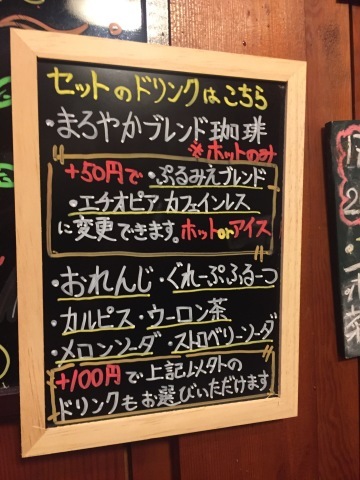 セットのドリンクはこちら
・まろやかブレンド珈琲
*ホットのみ
+50円で・ぷるみえブレンド
・エチオピア カフェインレス
に変更できます。ホットorアイス
・おれんじ・ぐれーぷふるーつ
・カルピス・ウーロン茶
・メロンソーダ・ストロベリーソーダ
+100円で上記以外の
ドリンクもお選びいただけます